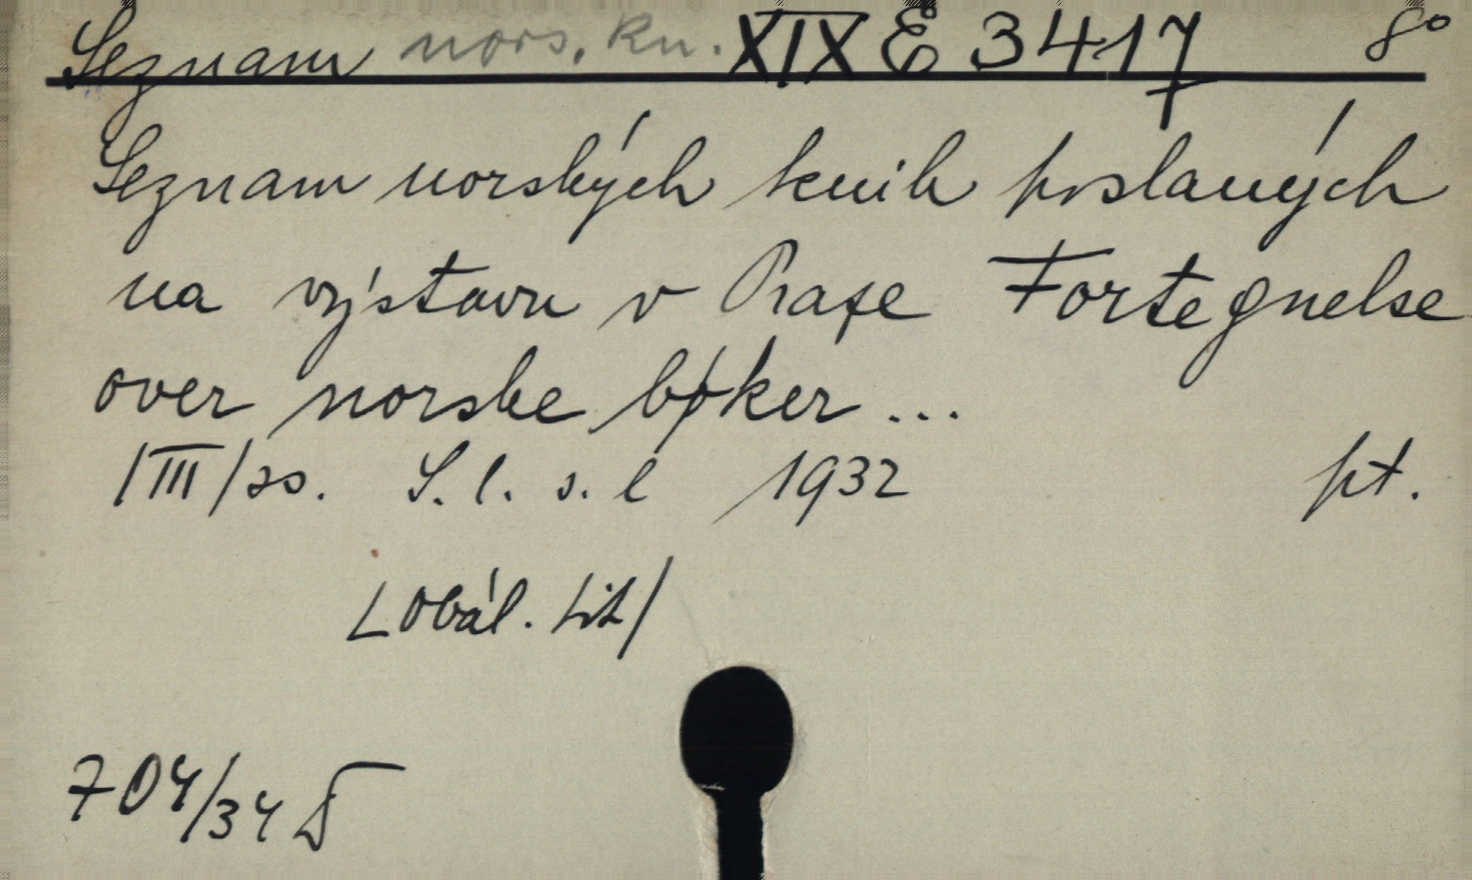 Seznam nors. kn. XIX E 3417 8°
Seznam norských knih poslaných
na výstavu v Praze Fortegnelse
over norske bøker ...
/III/ ss. S. l. s. l 1932 pt.
[obál. tit/
704/34